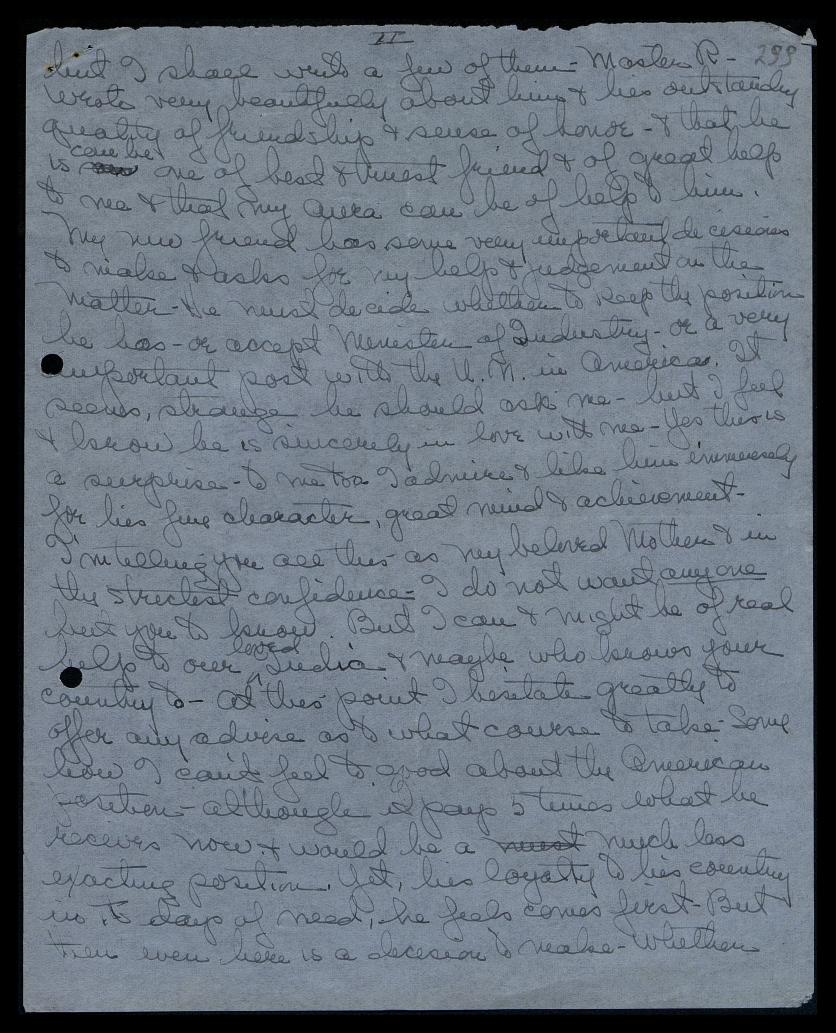 II
299
but I shall write a few of them - Master R -
wrote very beautifully about him & his outstanding
quality of friendship & sense of honor - & that he
can be
is one of best & truest friend & of great help
to me & that my aura can be of help to him.
My new friend has some very important decisions
to make & asks for my help & judgement on the
matter - He must decide whether to keep the position
he has - or accept Minister of Industry - or a very
important post with the U. N. in America. It
seems, strange he should ask me - but I feel
& know he is sincerely in love with me - Yes this is
a surprise - to me too I admire & like him immensely
for his fine character, great mind & achievement -
I'm telling you all this as my beloved Mother & in
the strictest confidence - I do not want anyone
but you to know. But I can & might be of real
loved
help to our ^ India & maybe who knows your
country to - At this point I hesitate greatly to
offer any advise as to what course to take - Some
how I can't feel to good about the American
position - although it pays 5 times what he
receives now & would be a must much less
exacting position. Yet, his loyalty to his country
in its days of need, he feels comes first - But
then even here is a decision to make - whether